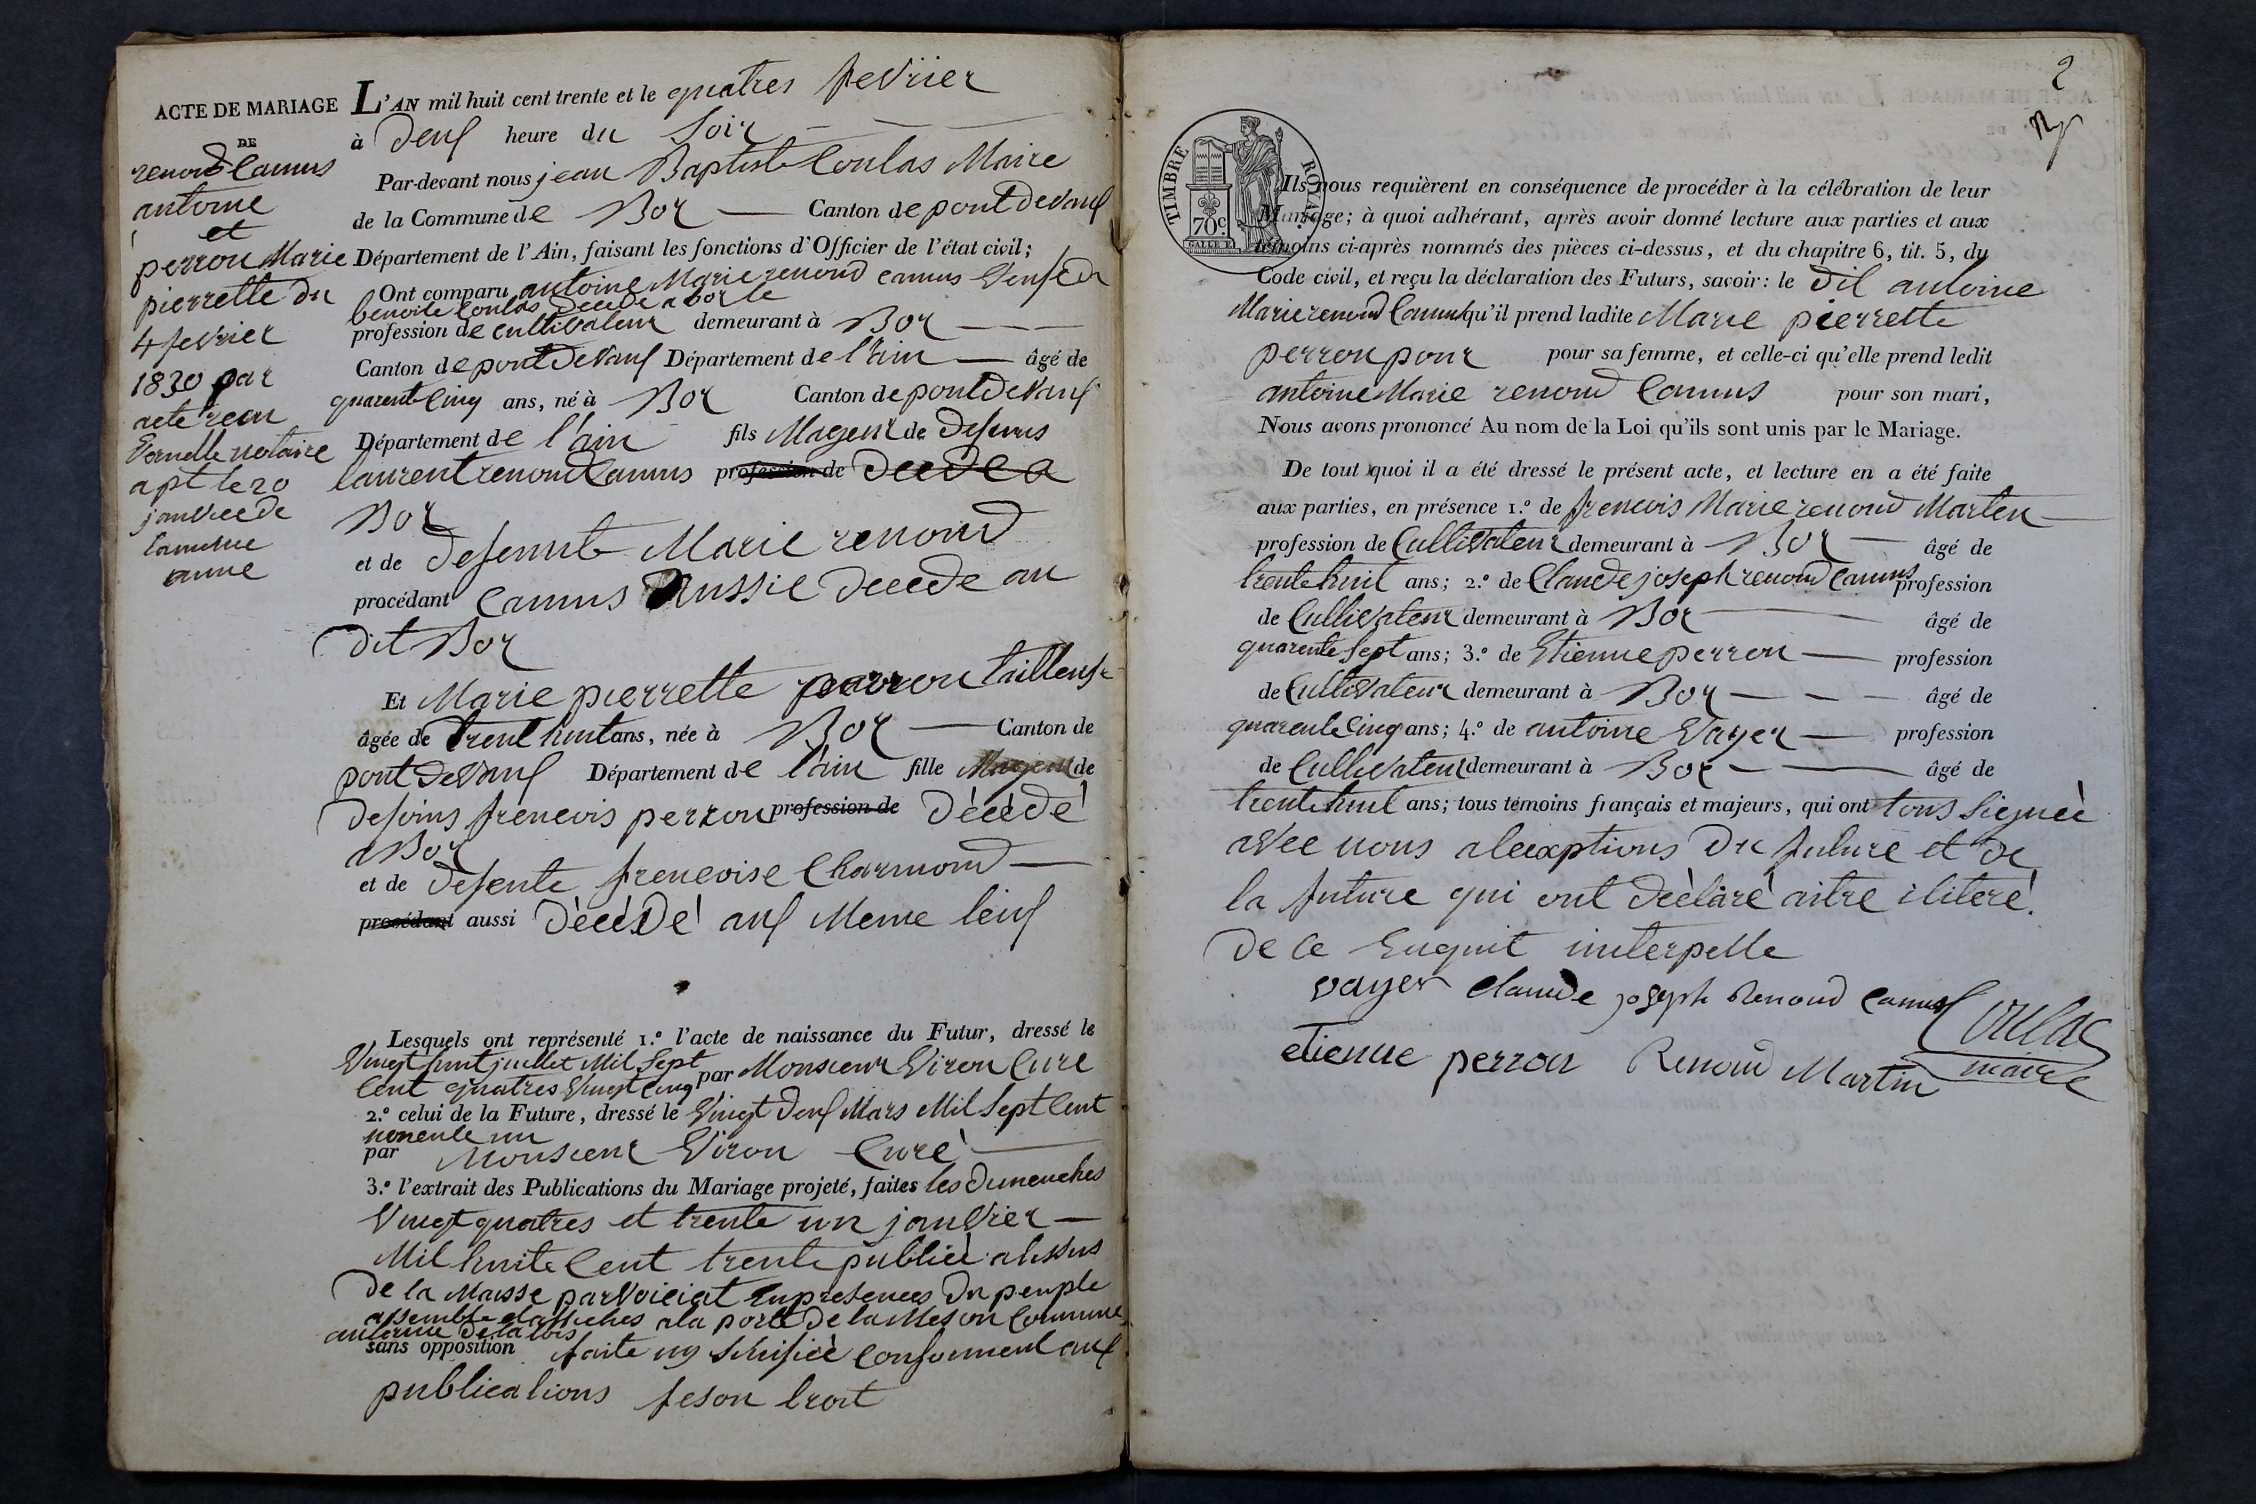 ACTE DE MARIAGE
DE
renoud Camus
antoine
et
perron Marie
pierrette du
4 fevrier
1830 par
acte recu
notaire
a pt le 20
L'AN mil huit cent trente et le quatres fevrier
à deux heure du Soir
Par-devant nous jean Baptiste Coulas Maire
de la Commune de Boz Canton de pont devaux
Département de l'Ain, faisant les fonctions d'Officier de l'état civil;
Ont comparu antoine Marie renoud camus veuf de
benoite Coulas decede a boz le
profession de cultivateur demeurant à Boz
Canton de pont devaux Département de l'ain âgé de
quarente Cinq ans, né à Boz Canton de pont devaux
Département de l'ain fils Mageur de defunts
laurent renoud Camus profession de decede a
Boz
et de defunte Marie renoud
procédant camus Aussie decede au
dit Boz
Et Marie pierrette perron tailleuse
âgée de trent huit ans, née à Boz Canton de
pont devaux Département de l'ain fille Mageur de
defoins frencois perron profession de dècèdé
a Boz
et de defente frencoise Charmond
procédant aussi dècèdé aux Meme leiux
Lesquels ont représenté 1.º l'acte de naissance du Futur, dressé le
Vingt huit juillet Mil Sept
Cent quatres Vingt Cinq par Monsieur Viron Cure
2.º celui de la Future, dressé le Vingt deux Mars Mil Sept Cent
nonente un
par Monsieur Viron Curè
3.º l'extrait des Publications du Mariage projeté, faites les dimenches
Vingt quatres et trente un janvier
Mil huite Cent trente publièe a lissus
de la Maisse parvoiciat en presences du peuple
assemble et affiches a la porte de la Meson Commune
au terme de la lois
sans opposition faite ny Sinifièe Conforment aux
publications feson troit
2
TIMBRE ROYAL
70c
Ils nous requièrent en conséquence de procéder à la célébration de leur
Mariage; à quoi adhérant, après avoir donné lecture aux parties et aux
témoins ci-après nommés des pièces ci-dessus, et du chapitre 6, tit. 5, du
Code civil, et reçu la déclaration des Futurs, savoir: le dit antoine
Marie renoud Camus qu'il prend ladite Marie pierrette
perron pour pour sa femme, et celle-ci qu'elle prend ledit
antoine Marie renoud Camus pour son mari,
Nous avons prononcé Au nom de la Loi qu'ils sont unis par le Mariage.
De tout quoi il a été dressé le présent acte, et lecture en a été faite
aux parties, en présence 1.º de frencois Marie renoud Marten
profession de Cultivateur demeurant à Boz âgé de
trente huit ans; 2.º de Claude joseph renoud Camus profession
de Cultivateur demeurant à Boz âgé de
quarente Sept ans; 3.º de Etienne perron profession
de Cultivateur demeurant à Boz âgé de
quarente Cinq ans; 4.º de antoine Vayer profession
de Cultivateur demeurant à Boz âgé de
trente huit ans; tous témoins français et majeurs, qui ont tous Signeè
avec nous a lexaptions du future et de
la future qui ont déclaré aitre iliteré.
de Ce Enquit interpelle
vayer Claude joseph Renoud Camus Coulas
etienne perron Renoud Martin maire